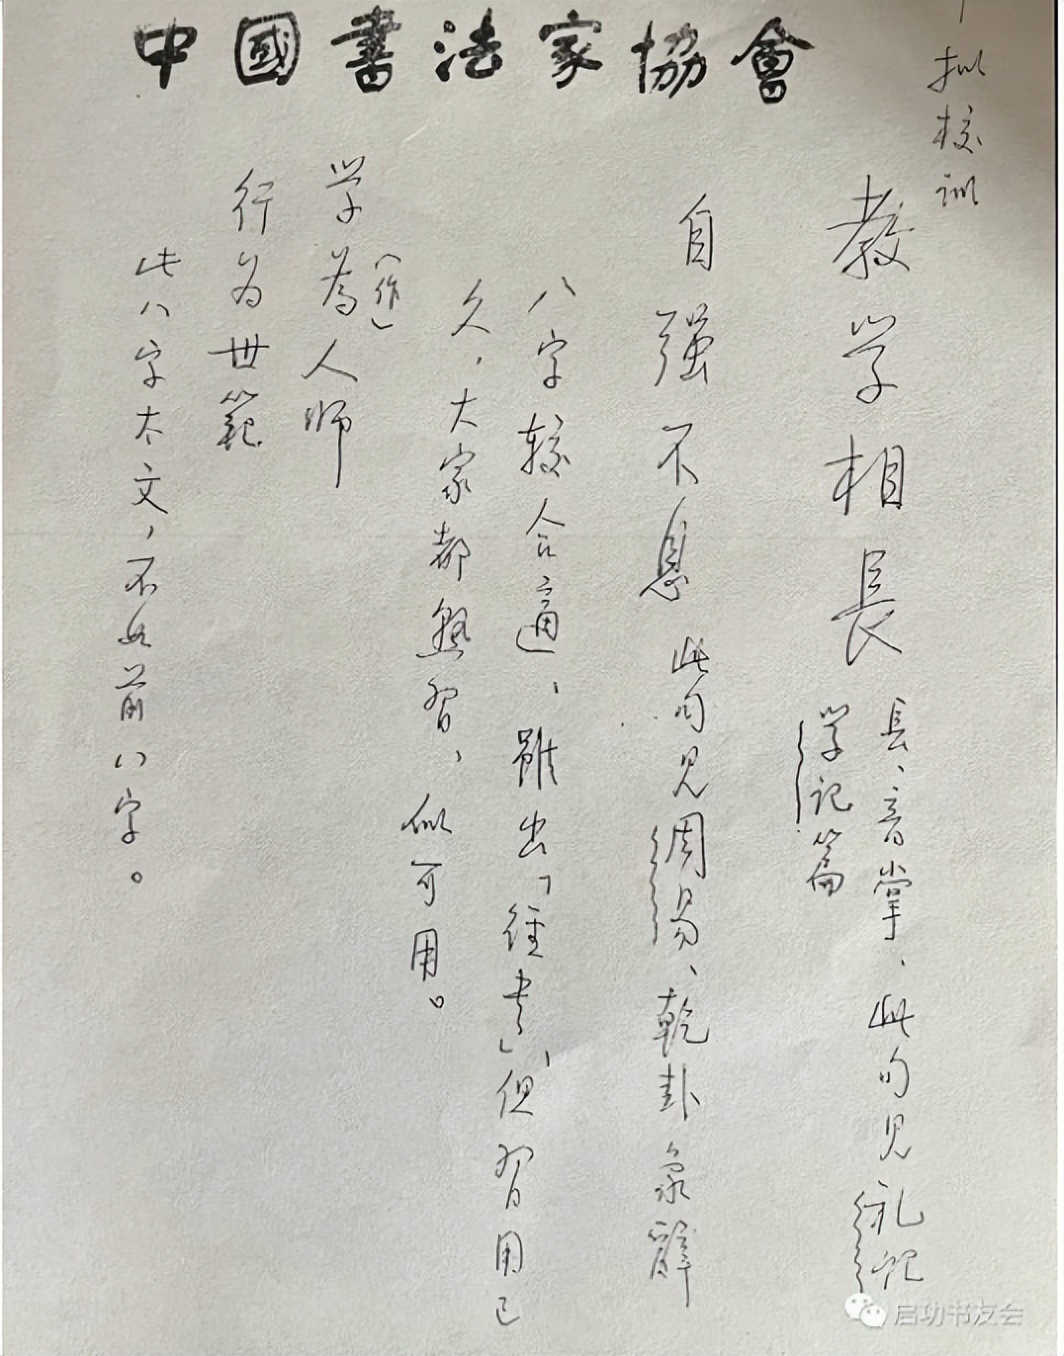 中國書法家協會
拟校训
教学相長
長、音掌、此句见礼记
学记篇
自强不息 此句见周易、乾卦象辞
八字较合适、虽出「经书」、但習用已
久，大家都熟習、似可用。
（作）
学為人师
行为世範
此八字太文，不如前八字。
启功书友会